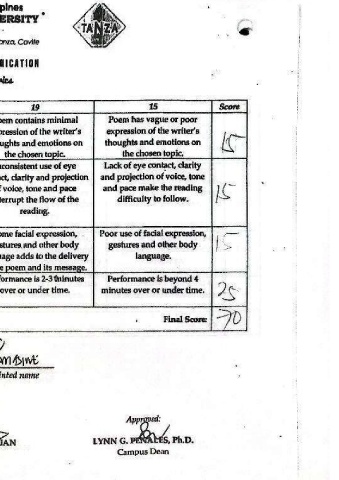 pines
ERSITY
TANZA
onza, Cavite
NICATION
19 15 Score
oem contains minimal
pression of the writer's
oughts and emotions on
the chosen topic.
Poem has vague or poor
expression of the writer's
thoughts and emotions on
the chosen topic.
15
nconsistent use of eye
act, clarity and projection
f voice, tone and pace
terrupt the flow of the
reading.
Lack of eye contact, clarity
and projection of voice, tone
and pace make the reading
difficulty to follow.
15
ome facial expression,
stures and other body
uage adds to the delivery
e poem and its message.
Poor use of facial expression,
gestures and other body
language.
15
formance is 2-3 minutes
over or under time.
Performance is beyond 4
minutes over or under time.
25
Final Score: 70
inted name
Approved:
LYNN G. PENALES, Ph.D.
Campus Dean